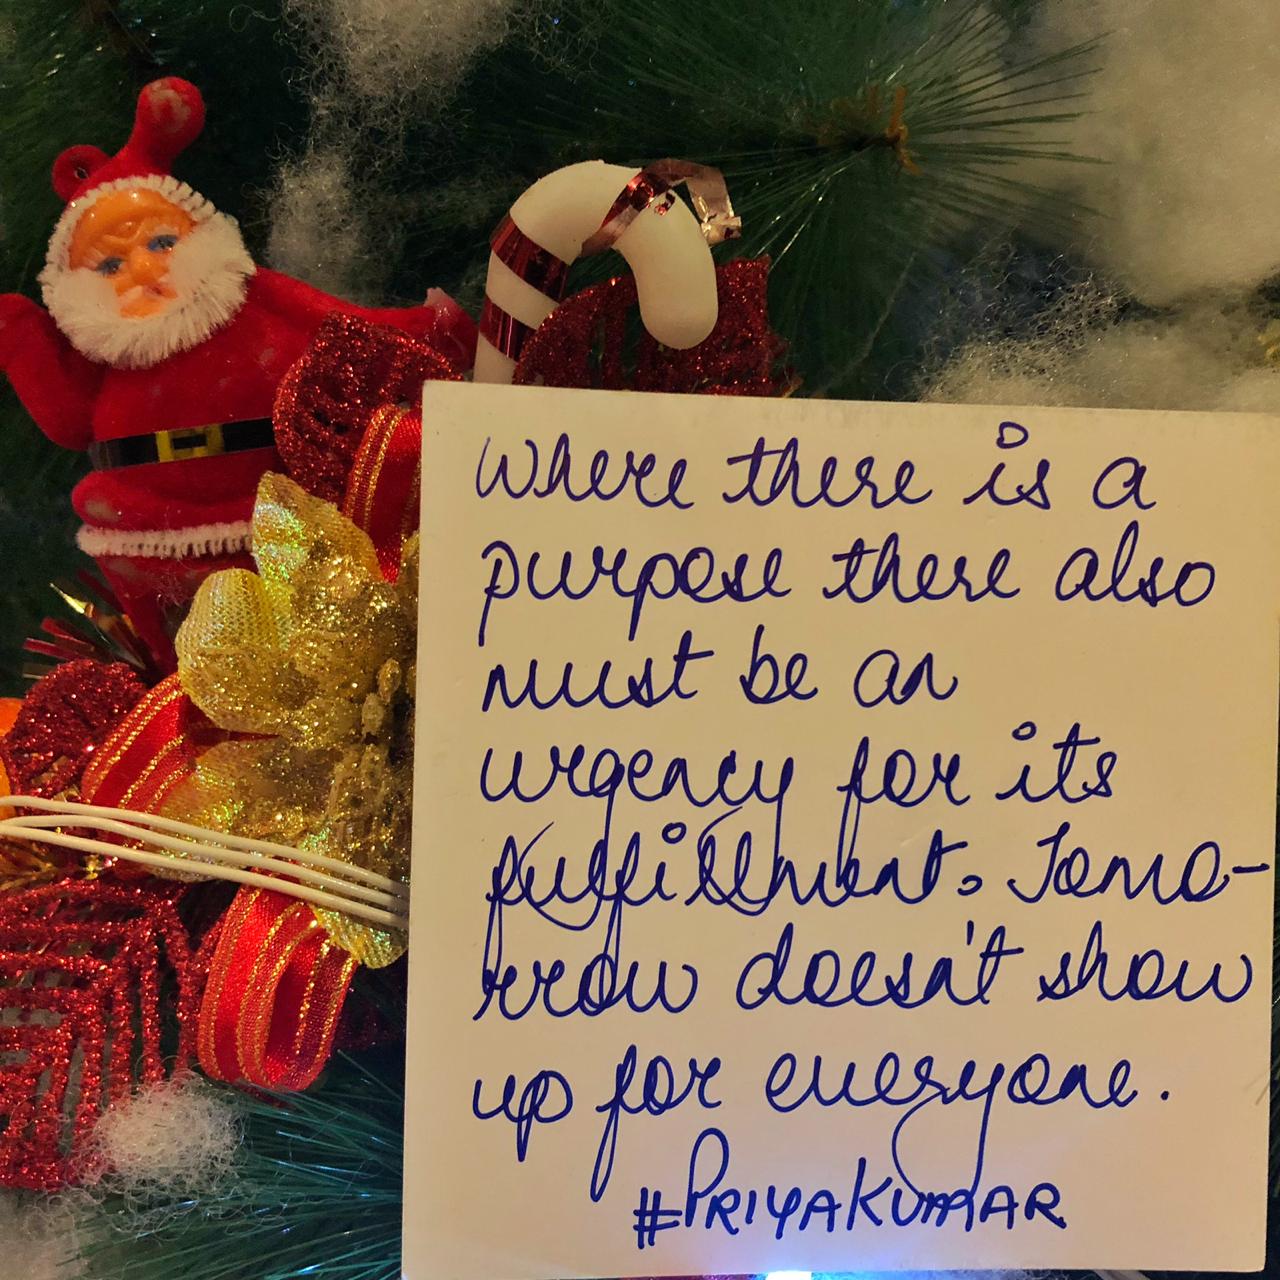 Where there is a
purpose there also
must be an
urgency for its
fulfillment. Tomo-
rrow doesn't show
up for everyone.
#PRIYAKUMAR